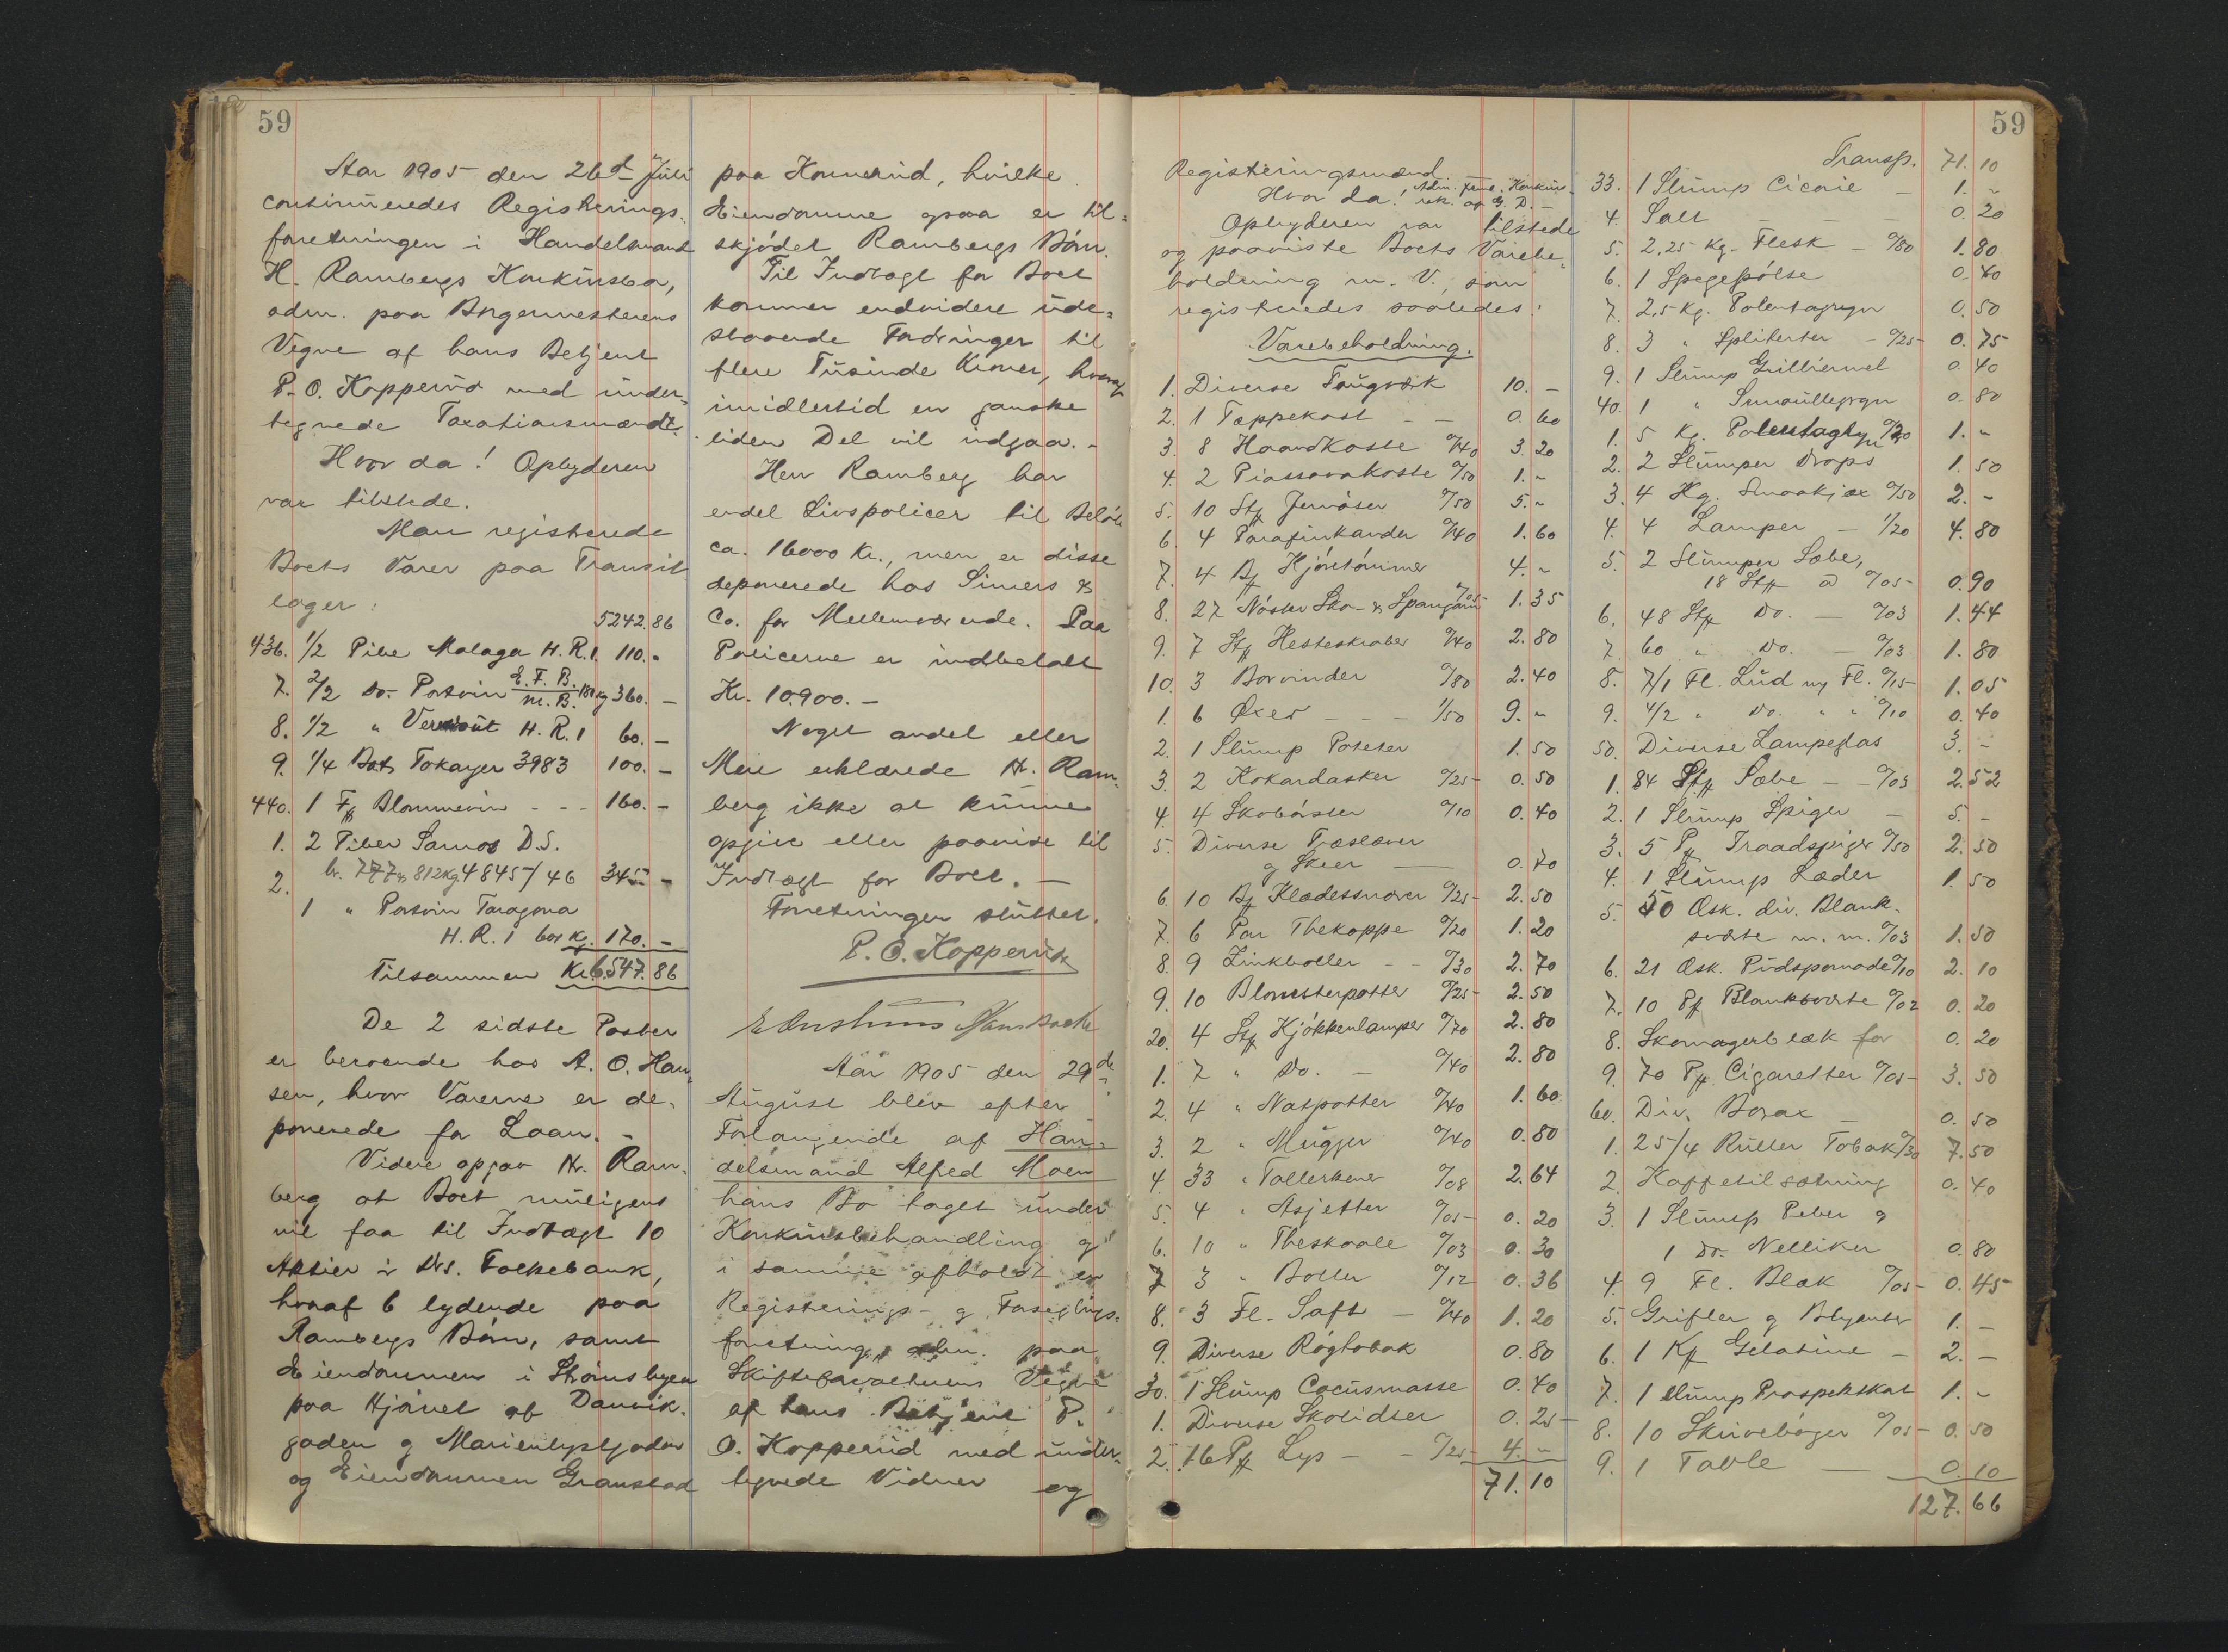 59
Aar 1905 den 26d Juli
continueredes Registerings-
forretningen i Handelsmand
H. Rambergs Konkursbo,
adm. paa Borgermesterens
Vegne af hans Betjent
P. O. Kopperud med under-
tegnede Taxationsmænd.
Hvor da! Opbyderen
var tilstede.
Man registerede
Boets Varer paa Transit
lager:
5242.86
436. 1/2 Pibe Malaga H. R. 1. 110.-
7. 2/2 do. Portvin E. F. B. / M. B. 180 kg 360.-
8. 1/2 " Vermout H. R. 1 60.-
9. 1/4 Bot. Tokayer 3983 100.-
440. 1 Fj Blommevin - - - 160.-
1. 2 Piber Samos D.S.
br. 777 & 812 kg 4845/46 345.-
2.
1 " Portvin Taragona
H. R. 1 601 kg. 170.-
Tilsammen Kr. 6.547.86
De 2 sidste Poster
er beroende hos A. O. Han-
sen, hvor Varerne er de-
ponerede for Laan. -
Videre opgav Hr. Ram-
berg at Boet muligens
vil faa til Indtægt 10
Aktier i Drs. Folkebank,
hvoraf 6 lydende paa
Rambergs Børn, samt
Eiendommen i Strømsbyen
paa Hjørnet af Danvik-
gaden og Marienlystgaden
og Eiendommen Granstad
paa Konnerud, hvilke
Eiendomme ogsaa er til-
skjødet Rambergs Børn.
Til Indtægt for Boet
kommer endvidere ude-
staaende Fordringer til
flere Tusinde Kroner, hvoraf
imidlertid en ganske
liden Del vil indgaa. -
Herr Ramberg har
endel Livspolicer til Beløb
ca. 16000 Kr., men er disse
deponerede hos Simers &
Co. for Mellemværende. Paa
Policerne er indbetalt
Kr. 10.900.-
Noget andet eller
Mere erklærede Hr. Ram-
berg ikke at kunne
opgive eller paavise til
Indtægt for Boet. -
Forretningen sluttet.
P. O. Kopperud
Hans Bache
Aar 1905 den 29de
August blev efter
Forlangende af Han-
delsmand Alfred Moen
hans Bo taget under
Konkursbehandling og
i samme afholdt en
Registerings- og Forseglings-
forretning, adm. paa
Skifteforvalterens Vegne
af hans Betjent P.
O. Kopperud med under-
tegnede Vidner og
59
Registeringsmænd
Hvor da! Adm. fene. Konkurs- rek. af G. D. -
Opbyderen var tilstede
og paaviste Boets Varebe-
holdning m. V., som
registeredes saaledes:
Varebeholdning.
1. Diverse Taugværk 10.-
2. 1 Tappekost - - 0.60
3. 8 Haandkoste 0/40 3.20
4. 2 Piassavakoste 0/50 1.-
5. 10 Stk Jernøser 0/50 5.-
6. 4 Parafinkander 0/40 1.60
7. 4 Bf Hjóretömmer 4.-
8. 27 Nøster Sko- & Spangarn 0/05 1.35
9. 7 Stk Hesteskraber 0/40 2.80
10. 3 Borvinder 0/80 2.40
1. 6 Øxer - - - 1/50 9.-
2. 1 Slump Poteter 1.50
3. 2 Kokardasker 0/25- 0.50
4. 4 Skobørster 0/10 0.40
5. Diverse Træsleever
og Skeer 0.70
6. 10 Bf Klædessnorer 0/25- 2.50
7. 6 Par Thekoppe 0/20 1.20
8. 9 Zinkboller - - 0/30 2.70
9. 10 Blomsterpotter 0/25- 2.50
20. 4 Stk Kjökkenlamper 0/70 2.80
1. 7 " Do. - 0/40 2.80
2. 4 " Natpotter 0/40 1.60
3. 2 " Mugger 0/40 0.80
4. 33 " Tallerkener 0/08 2.64
5. 4 " Asjetter 0/05- 0.20
6. 10 " Theskaale 0/03 0.30
7 3 " Boller 0/12 0.36
8. 3 Fl. Saft - 0/40 1.20
9. Diverse Røgtobak 0.80
30. 1 Slump Cocusmasse 0.40
1. Diverse Skolidser 0.25-
2. 16 Pk Lys - - 0/25- 4.-
71.10
59
Transp. 71.10
33. 1 Slump Cicorie - 1.-
4. Salt - - - 0.20
5. 2,25 kg. Flesk - 0/80 1.80
6. 1 Spegepølse 0.40
7. 2,5 kg. Polentagryn 0.50
8. 3 " Spliterter - 0/25- 0.75
9. 1 Slump Grilliermel 0.40
40. 1 " Smaullegryn 0.80
1. 5 kg. Polentagryn 0/20 1.-
2. 2 Slumper Drops 1.50
3. 4 Kg. Smaakjæx 0/50 2.-
4. 4 Lamper - 1/20 4.80
5. 2 Slumper Sæbe,
18 Stk a 0/05- 0.90
6. 48 Stk Do. - 0/03 1.44
7. 60 " Do. - 0/03 1.80
8. 7/1 Fl. Lud og Fl. 0/15- 1.05
9. 4/2 " do. " " 0/10 0.40
50. Diverse Lampeglas 3.-
1. 84 Stk Sæbe - - 0/03 2.52
2. 1 Slump Spiger - 5.-
3. 5 Pk Traadspiger 0/50 2.50
4. 1 Slump Læder 1.50
5. 50 Æsk. div. Blank-
sværte m. m. 0/03 1.50
6. 21 Æsk. Pudspomade 0/10 2.10
7. 10 Pk Blanksværte 0/02 0.20
8. Skomagerblæk for 0.20
9. 70 Pk Cigaretter 0/05- 3.50
60. Div. Borax - 0.50
1. 25/4 Ruller Tobak 0/30 7.50
2. Kaffetilsætning 0.40
3. 1 Slump Peber og
1 do. Nelliker 0.80
4. 9 Fl. Blæk 0/05- 0.45-
5. Grifler og Blyanter 1.-
6. 1 Kf Gelatine - 2.-
7. 1 slump Prospektskort 1.-
8. 10 Skrivebøger 0/05- 0.50
9. 1 Tavle 0.10
127.66